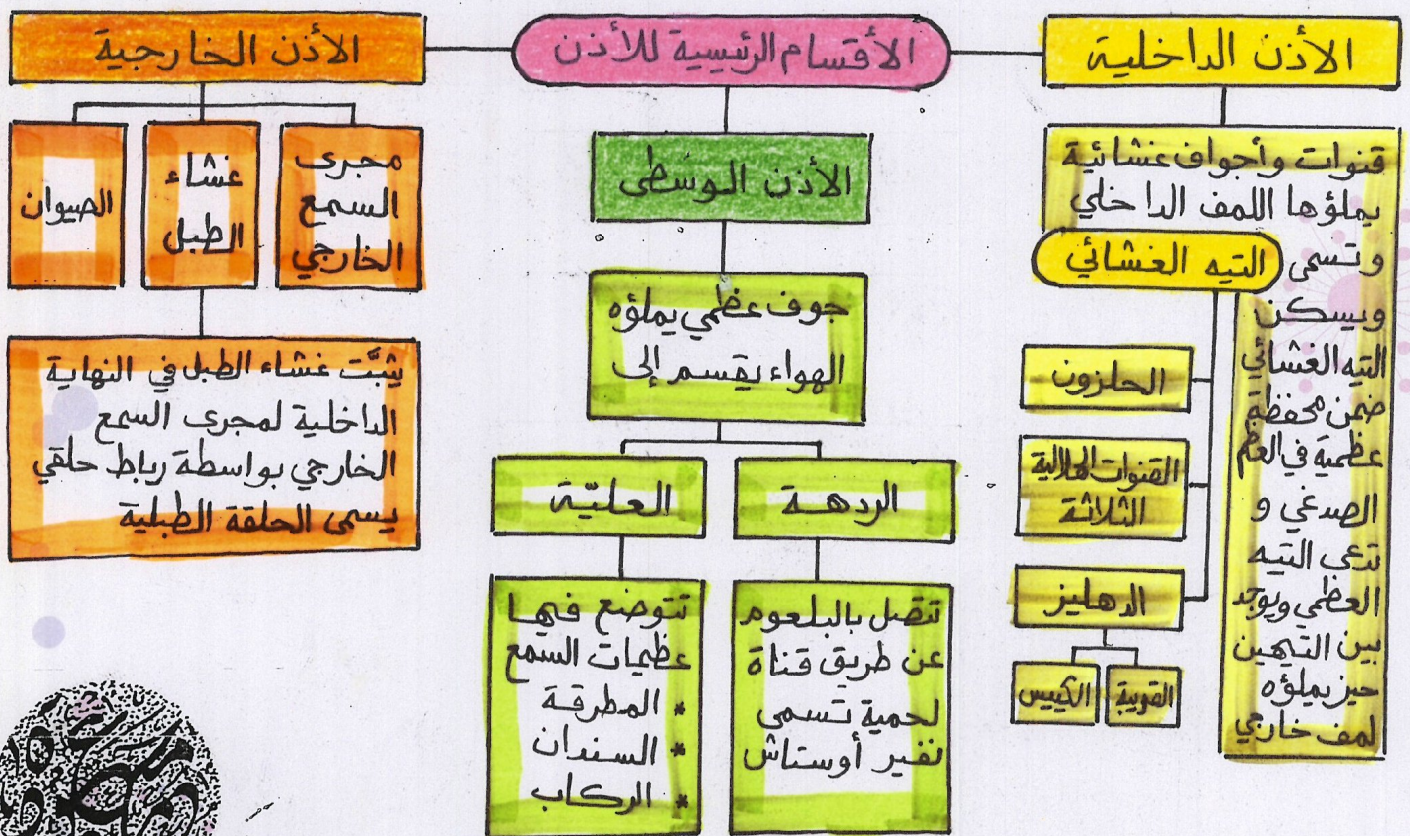 الأقسام الرئيسية للأذن
الأذن الداخلية
قنوات وأجواف غشائية
يملؤها اللمف الداخلي
وتسمى التيه الغشائي
ويسكن
التيه الغشائي
ضمن محفظة
عظمية في العظم
الصدغي و
تدعى التيه
العظمي ويوجد
بين التيهين
حيز يملؤه
لمف خارجي
الحلزون
القنوات الهلالية
الثلاثة
الدهليز
القريبة
الكييس
الأذن الوسطى
جوف عظمي يملؤه
الهواء يقسم إلى
الردهة
تتصل بالبلعوم
عن طريق قناة
لحمية تسمى
نفير أوستاش
العليّة
تتوضع فيها
عظيمات السمع
* المطرقة
* السندان
* الركاب
الأذن الخارجية
مجرى
السمع
الخارجي
غشاء
الطبل
الصيوان
يثبَّت غشاء الطبل في النهاية
الداخلية لمجرى السمع
الخارجي بواسطة رباط حلقي
يسمى الحلقة الطبلية